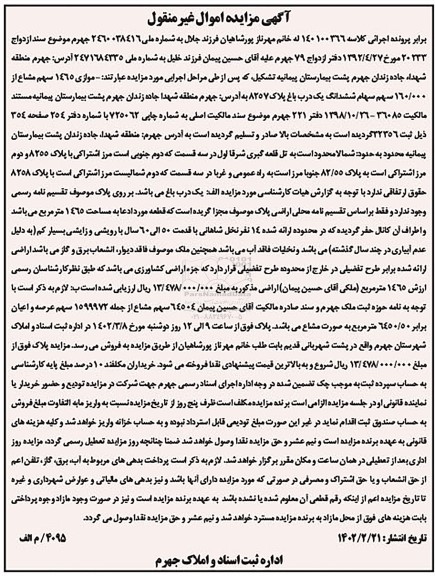 آگهی مزایده اموال غیرمنقول
برابر پرونده اجرائی کلاسه ۱۴۰۱۰۰۳۶۶ له خانم مهرناز پورشاهیان فرزند جلال به شماره ملی ۲۴۶۰۰۳۸۴۱۶ جهرم موضوع سند ازدواج
۲۰۳۳۳ مورخ ۱۳۹۲/۴/۲۷ دفتر ازدواج ۷۹ جهرم علیه آقای حسین پیمان فرزند خلیل به شماره ملی ۲۴۷۱۶۸۴۳۳۵ آدرس: جهرم منطقه
شهداء جاده زندان جهرم پشت بیمارستان پیمانیه تشکیل، که پس از طی مراحل اجرایی مورد مزایده عبارتند: - موازی ۱۴۶۵ سهم مشاع از
۱۶۰/۰۰۰ سهم سهام ششدانگ یک درب باغ پلاک ۸۲۵۷ به آدرس: جهرم منطقه شهدا جاده زندان جهرم پشت بیمارستان پیمانیه مستند
مالکیت ۳۶۰۸۵ - ۱۳۹۸/۱۰/۲۶ دفتر ۲۲۱ جهرم موضوع سند مالکیت اصلی به شماره چاپی ۷۲۵۰۶۲ با شماره دفتر ۲۵۴ صفحه ۳۵۴
ذیل ثبت ۳۲۳۵۶ گردیده است به مشخصات بالا صادر و تسلیم گردیده است به آدرس جهرم: منطقه شهدا، جاده زندان پشت بیمارستان
پیمانیه محدود به حدود: شمالا محدود است به تل قلعه گبری شرقا اول در سه قسمت که دوم جنوبی است مرز اشتراکی با پلاک ۸۲۵۵ و دوم
مرز اشتراکی است به پلاک ۸۲/۵۵ جنوبا مرز است به راه عمومی و غربا در سه قسمت که دوم شمالیست مرز اشتراکی است با پلاک ۸۲۵۸
حقوق ارتفاقی ندارد با توجه به گزارش هیات کارشناسی مورد مزایده الف: یک درب باغ می باشد. بر روی پلاک موصوف تقسیم نامه رسمی
وجود ندارد و فقط براساس تقسیم نامه محلی اراضی پلاک موصوف مجزا گردیده است که قطعه مورد ادعا به مساحت ۱۴۶۵ متر مربع می باشد
و اطراف آن کانال حفر گردیده که در محدوده ارائه شده ۱۴ نفر نخل شاهانی با قدمت ۵۰ الی ۶۰ سال با رویشی و زایشی بسیار کم (به دلیل
عدم آبیاری در چند سال گذشته) می باشد و نخلیات فاقد آب می باشد همچنین ملک موصوف فاقد دیوار، انشعاب برق و گاز می باشد اراضی
ارائه شده برابر طرح تفضیلی در خارج از محدوده طرح تفضیلی قرار دارد که جزء اراضی کشاورزی می باشد که طبق نظر کارشناسان رسمی
ارزش ۱۴۶۵ مترمربع (ملکی آقای حسین پیمان) اراضی مذکور به مبلغ ۱۳/۴۷۸/۰۰۰/۰۰۰ ریال ارزیابی شده است ب: لازم به ذکر است با
توجه به نامه حوزه ثبت ملک جهرم و سند صادره مالکیت آقای حسین پیمان ۶۴۵۰۴ سهم مشاع از جمله ۱۵۹۹۹۷۳ سهم عرصه و اعیان
برابر ۶۴۵۰/۵۰ مترمربع به صورت مشاع می باشد. پلاک فوق از ساعت ۹ الی ۱۲ روز دوشنبه مورخ ۱۴۰۲/۳/۸ در اداره ثبت اسناد و املاک
شهرستان جهرم واقع در پشت شهربانی قدیم بابت طلب خانم مهرناز پورشاهیان از طریق مزایده به فروش می رسد. مزایده پلاک فوق از
مبلغ ۱۳/۴۷۸/۰۰۰/۰۰۰ ریال شروع و به بالاترین قیمت پیشنهادی نقدا فروخته می شود. خریداران مکلفند ۱۰ درصد مبلغ پایه کارشناسی
به حساب سپرده ثبت به موجب چک تضمین شده در وجه اداره اجرای اسناد رسمی جهرم جهت شرکت در مزایده تودیع و حضور خریدار یا
نماینده قانونی او در جلسه مزایده الزامی است برنده مزایده مکلف است ظرف پنج روز از تاریخ مزایده نسبت به واریز مابه التفاوت مبلغ فروش
به حساب صندوق ثبت اقدام نماید در غیر این صورت مبلغ تودیعی قابل استرداد نبوده و به حساب خزانه واریز خواهد شد و کلیه هزینه های
قانونی به عهده برنده مزایده است و نیم عشر و حق مزایده نقدا وصول خواهد شد ضمنا چنانچه روز مزایده تعطیل رسمی گردد، مزایده روز
اداری بعد از تعطیلی در همان ساعت و مکان مقرر برگزار خواهد شد. لازم به ذکر است پرداخت بدهی های مربوط به آب، برق، گاز، تلفن اعم
از حق انشعاب و یا حق اشتراک و مصرفی در صورتی که مورد مزایده دارای آنها باشد و نیز بدهی های مالیاتی و عوارض شهرداری و غیره
تا تاریخ مزایده اعم از اینکه رقم قطعی آن معلوم شده یا نشده باشد به عهده برنده مزایده است و نیز در صورت وجود مازاد وجوه پرداختی
بابت هزینه های فوق از محل مازاد به برنده مزایده مسترد خواهد شد و نیم عشر و حق مزایده نقدا وصول می گردد.
تاریخ انتشار: ۱۴۰۲/۲/۲۱
۴۰۹۵ / م الف
اداره ثبت اسناد و املاک جهرم